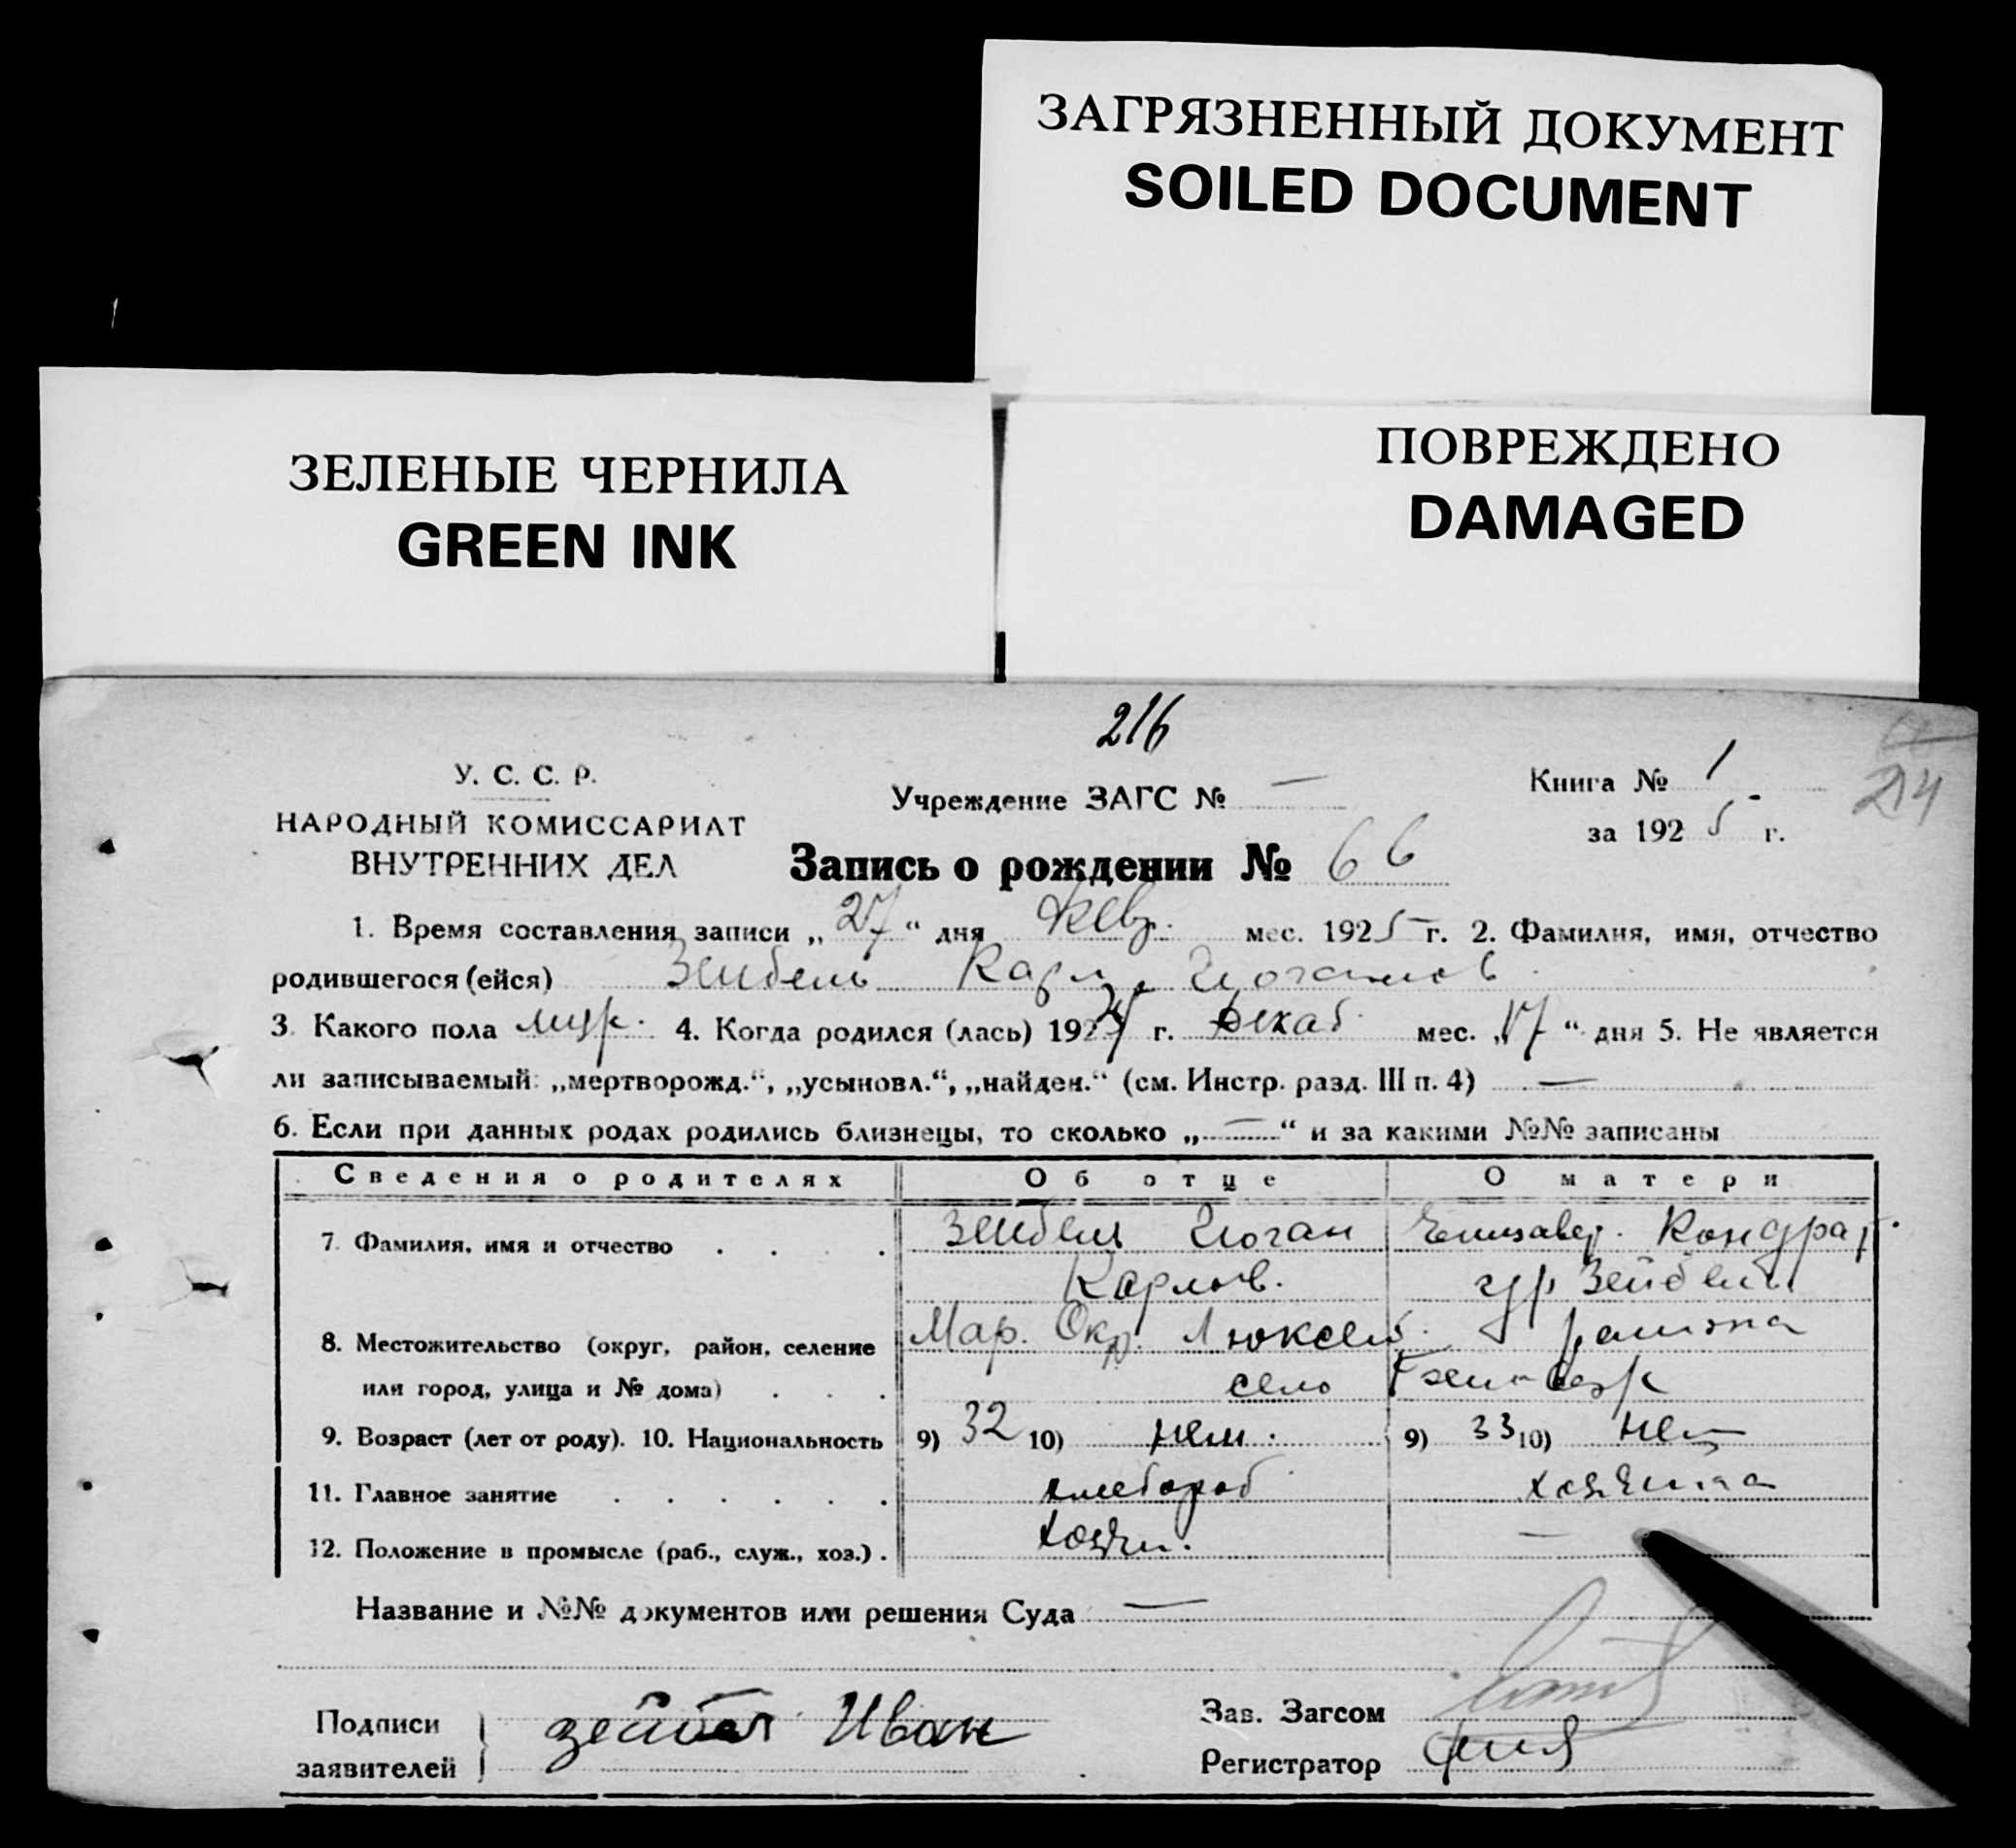 ЗАГРЯЗНЕННЫЙ ДОКУМЕНТ
SOILED DOCUMENT
ЗЕЛЕНЫЕ ЧЕРНИЛА
GREEN INK
ПОВРЕЖДЕНО
DAMAGED
216
214
У. С. С. Р.
НАРОДНЫЙ КОМИССАРИАТ
ВНУТРЕННИХ ДЕЛ
Учреждение ЗАГС № —
Книга № 1
за 1925 г.
Запись о рождении № 66
1. Время составления записи „27“ дня февр. мес. 1925 г. 2. Фамилия, имя, отчество
родившегося (ейся) Зейбель Карл Иоганов
3. Какого пола муж. 4. Когда родился (лась) 1924 г. Декаб. мес. „17“ дня 5. Не является
ли записываемый: „мертворожд.“, „усыновл.“, „найден.“ (см. Инстр. разд. III п. 4) —
6. Если при данных родах родились близнецы, то сколько „—“ и за какими №№ записаны
Сведения о родителях Об отце О матери
7. Фамилия, имя и отчество . . . . Зейбель Иоган Елизавет. Кондрат.
Карлов. гр. Зейбель
8. Местожительство (округ, район, селение Мар. Окр. Люксемб. района
или город, улица и № дома) . . . село
9. Возраст (лет от роду). 10. Национальность 9) 32 10) нем. 9) 33 10) нем
11. Главное занятие . . . . . . хлебороб хозяйка
12. Положение в промысле (раб., служ., хоз.) . хозяин. —
Название и №№ документов или решения Суда —
Подписи
заявителей
Зейбел Иван
Зав. Загсом
Регистратор